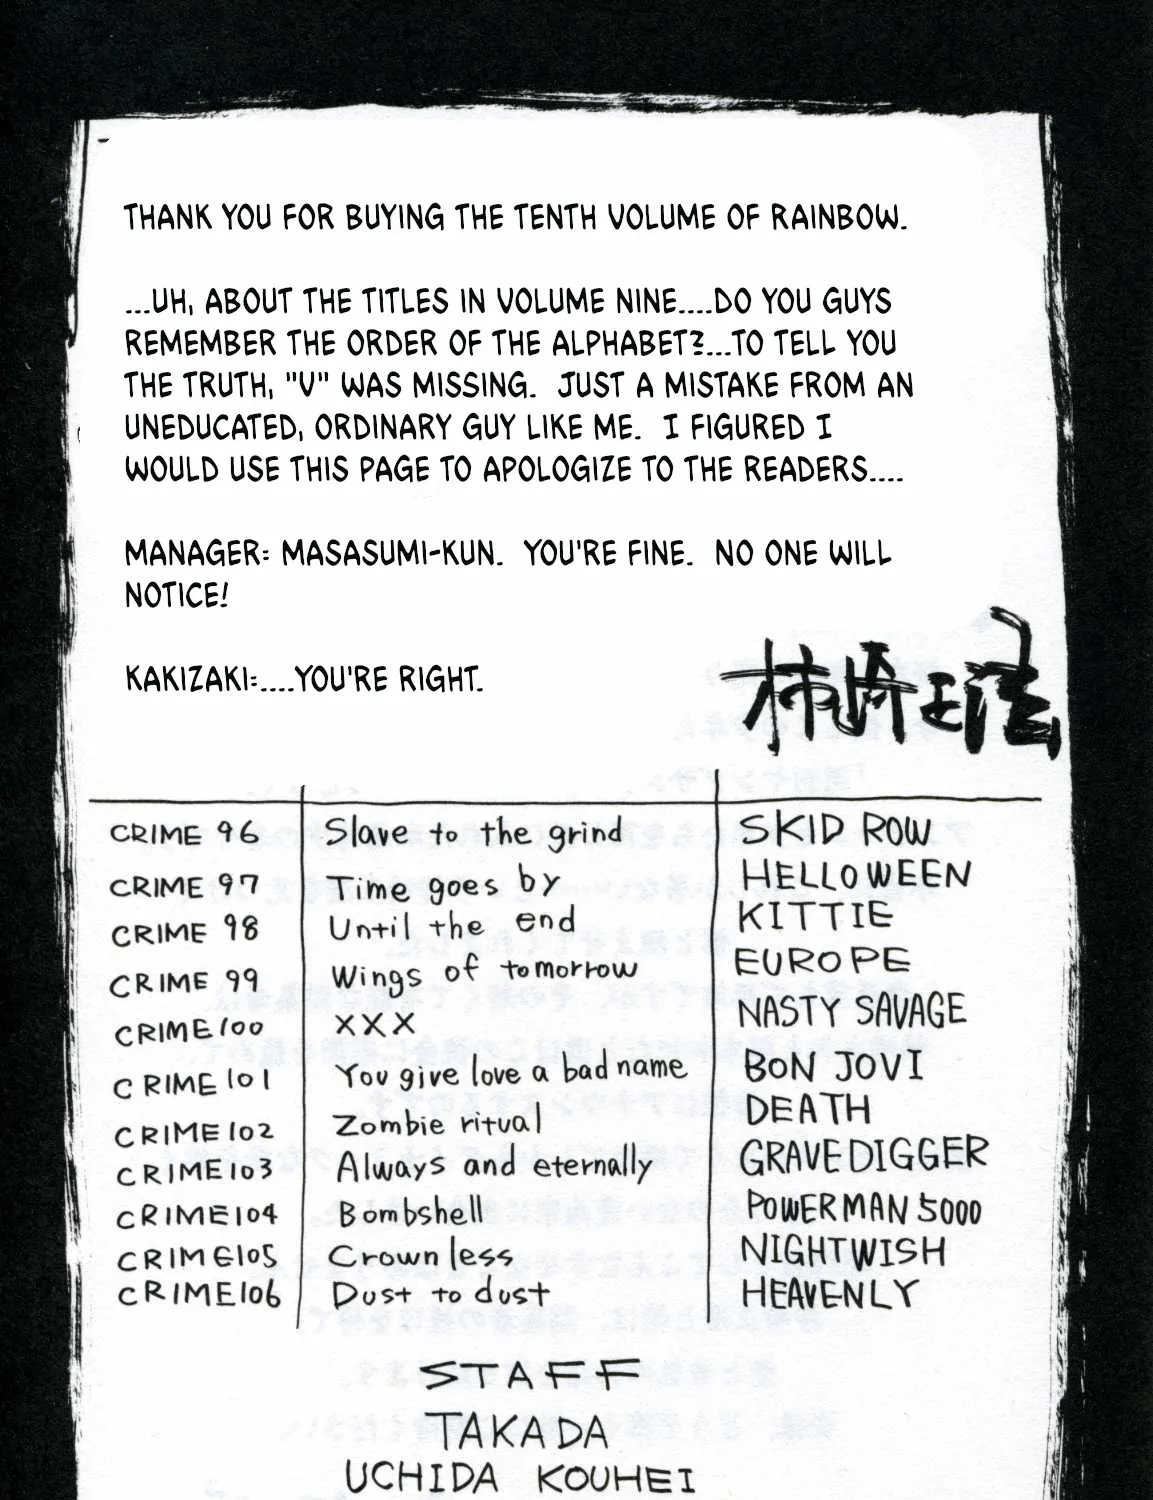 THANK YOU FOR BUYING THE TENTH VOLUME OF RAINBOW.
...UH, ABOUT THE TITLES IN VOLUME NINE....DO YOU GUYS
REMEMBER THE ORDER OF THE ALPHABET?...TO TELL YOU
THE TRUTH, "V" WAS MISSING. JUST A MISTAKE FROM AN
UNEDUCATED, ORDINARY GUY LIKE ME. I FIGURED I
WOULD USE THIS PAGE TO APOLOGIZE TO THE READERS....
MANAGER: MASASUMI-KUN. YOU'RE FINE. NO ONE WILL
NOTICE!
KAKIZAKI:....YOU'RE RIGHT.
CRIME 96 Slave to the grind SKID ROW
CRIME 97 Time goes by HELLOWEEN
CRIME 98 Until the end KITTIE
CRIME 99 Wings of tomorrow EUROPE
CRIME 100 XXX NASTY SAVAGE
CRIME 101 You give love a bad name BON JOVI
CRIME 102 Zombie ritual DEATH
CRIME 103 Always and eternally GRAVEDIGGER
CRIME 104 Bombshell POWERMAN 5000
CRIME 105 Crownless NIGHTWISH
CRIME 106 Dust to dust HEAVENLY
STAFF
TAKADA
UCHIDA KOUHEI